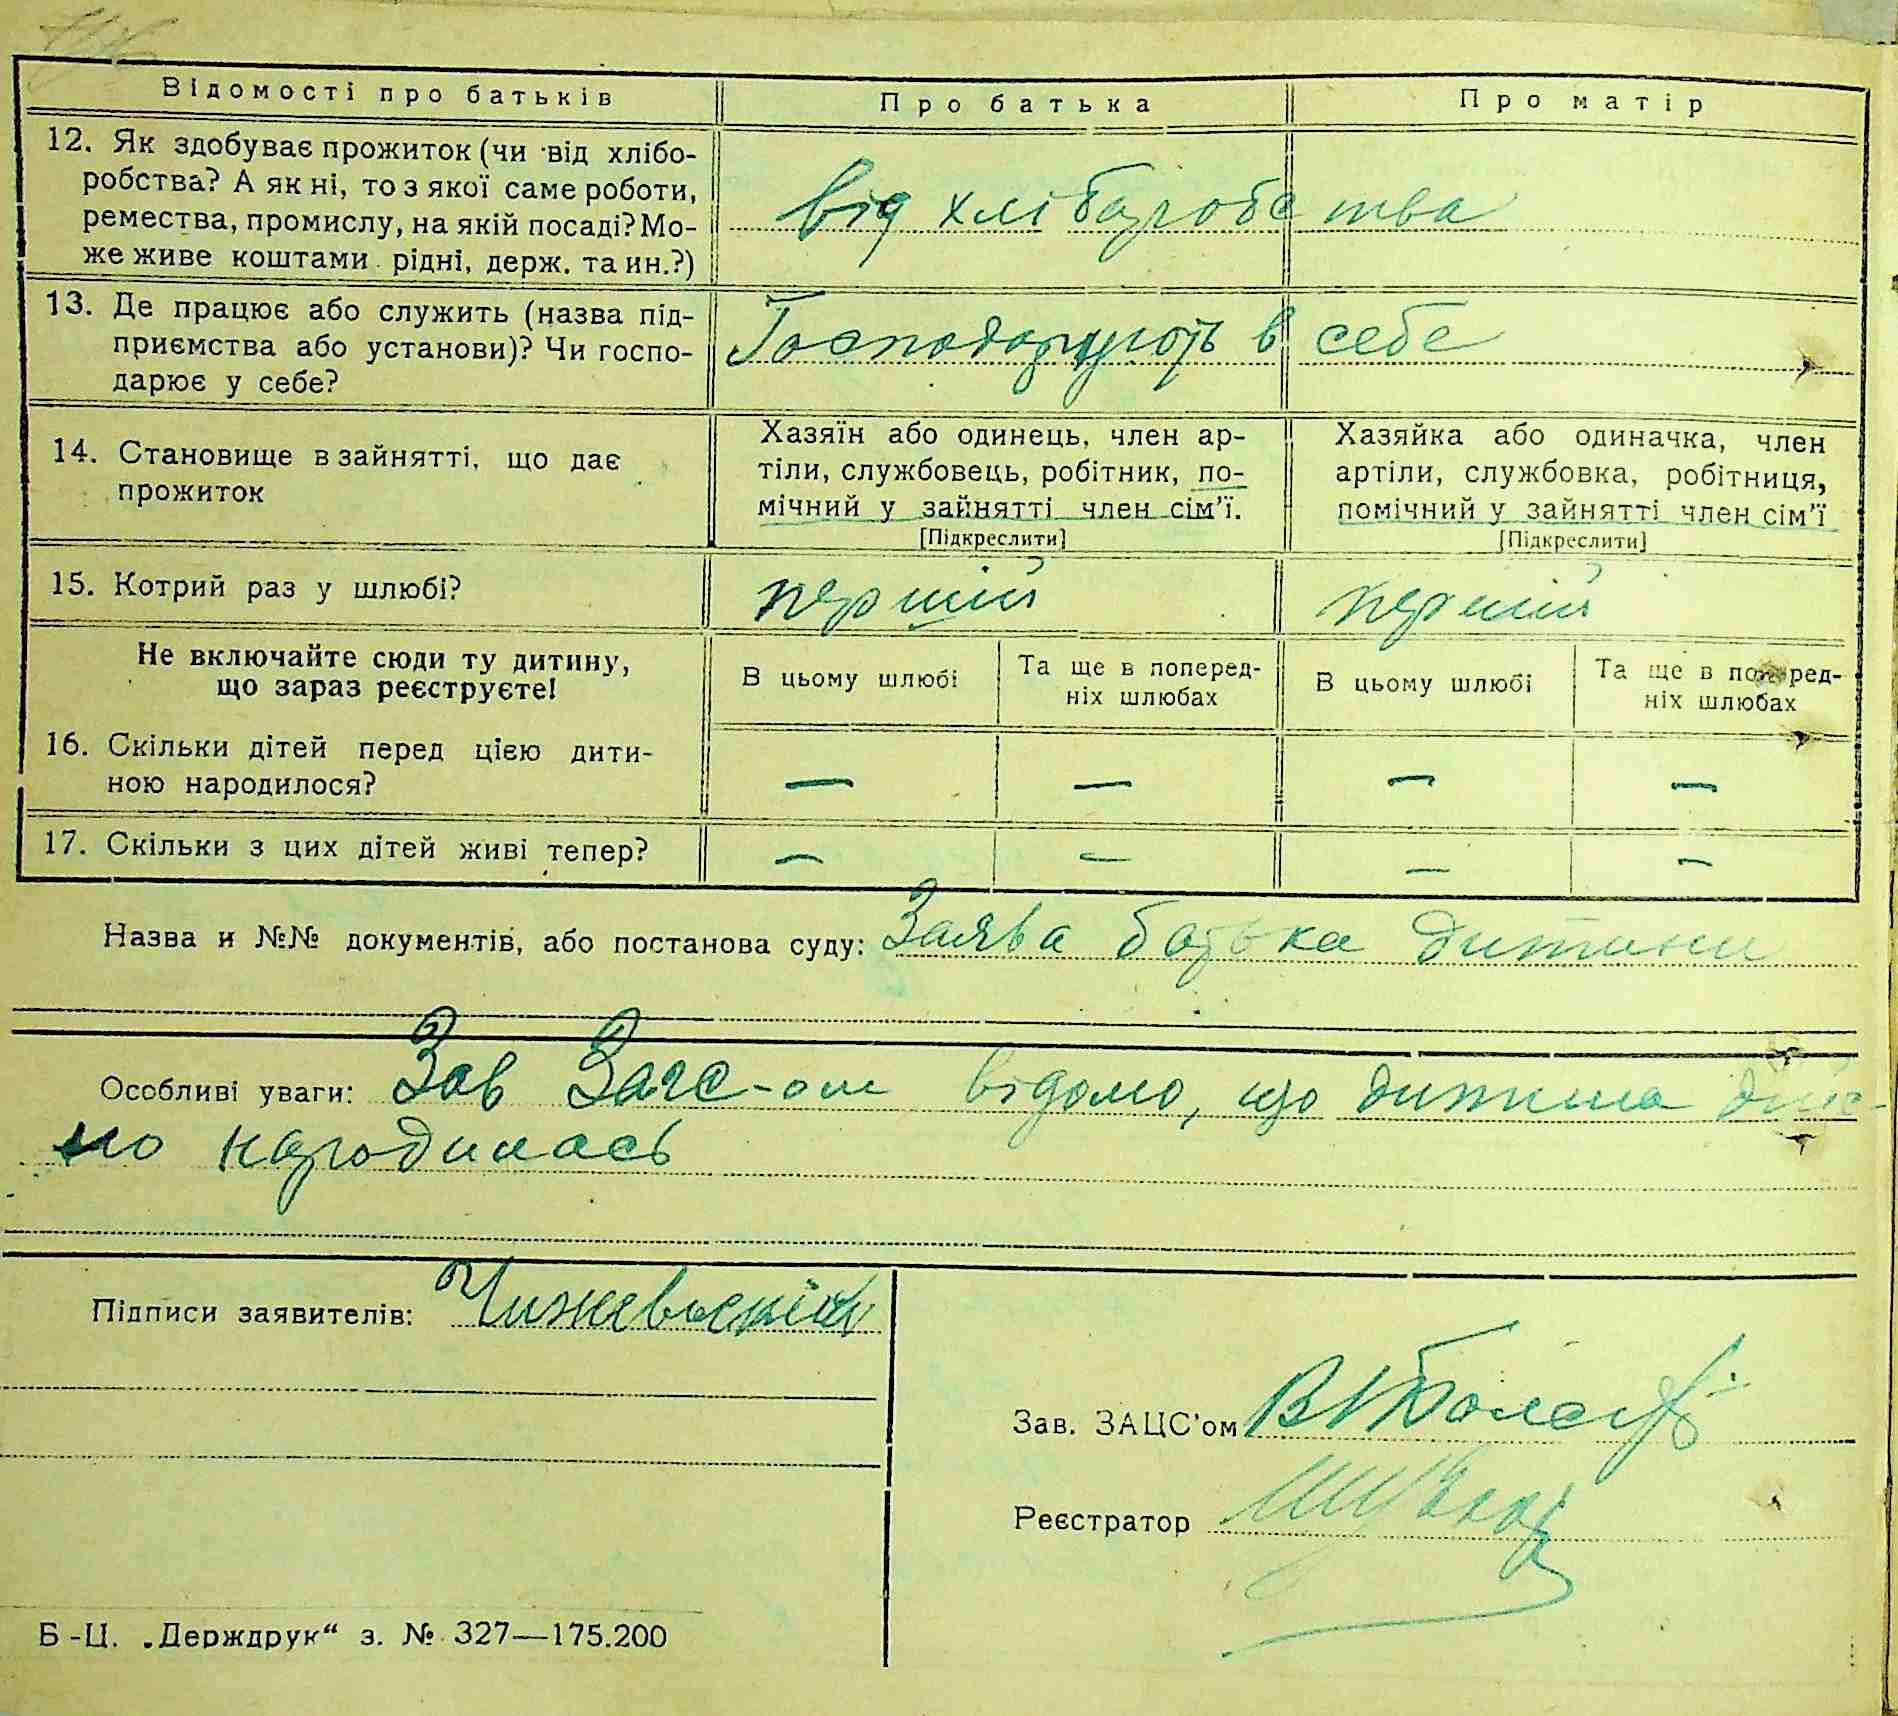 Відомості про батьків
Про батька
Про матір
12. Як здобуває прожиток (чи від хлібо-
робства? А як ні, то з якої саме роботи,
ремества, промислу, на якій посаді? Мо-
же живе коштами рідні, держ. та ин.?)
від хліборобства
13. Де працює або служить (назва під-
приємства або установи)? Чи госпо-
дарює у себе?
Господарують в себе
14. Становище в зайнятті, що дає
прожиток
Хазяїн або одинець, член ар-
тіли, службовець, робітник, по-
мічний у зайнятті член сім'ї.
[Підкреслити]
Хазяйка або одиначка, член
артіли, службовка, робітниця,
помічний у зайнятті член сім'ї
[Підкреслити]
15. Котрий раз у шлюбі?
перший
перший
Не включайте сюди ту дитину,
що зараз реєструєте!
В цьому шлюбі
Та ще в поперед-
ніх шлюбах
В цьому шлюбі
Та ще в поперед-
ніх шлюбах
16. Скільки дітей перед цією дити-
ною народилося?
— — — —
17. Скільки з цих дітей живі тепер?
— — — —
Назва и №№ документів, або постанова суду: Заява батька дитини
Особливі уваги: Зав Загс-ом відомо, що дитина дійс-
но народилась
Підписи заявителів: Чижевьский
Зав. ЗАЦС'ом
Реєстратор
Б-Ц. „Держдрук“ з. № 327—175.200